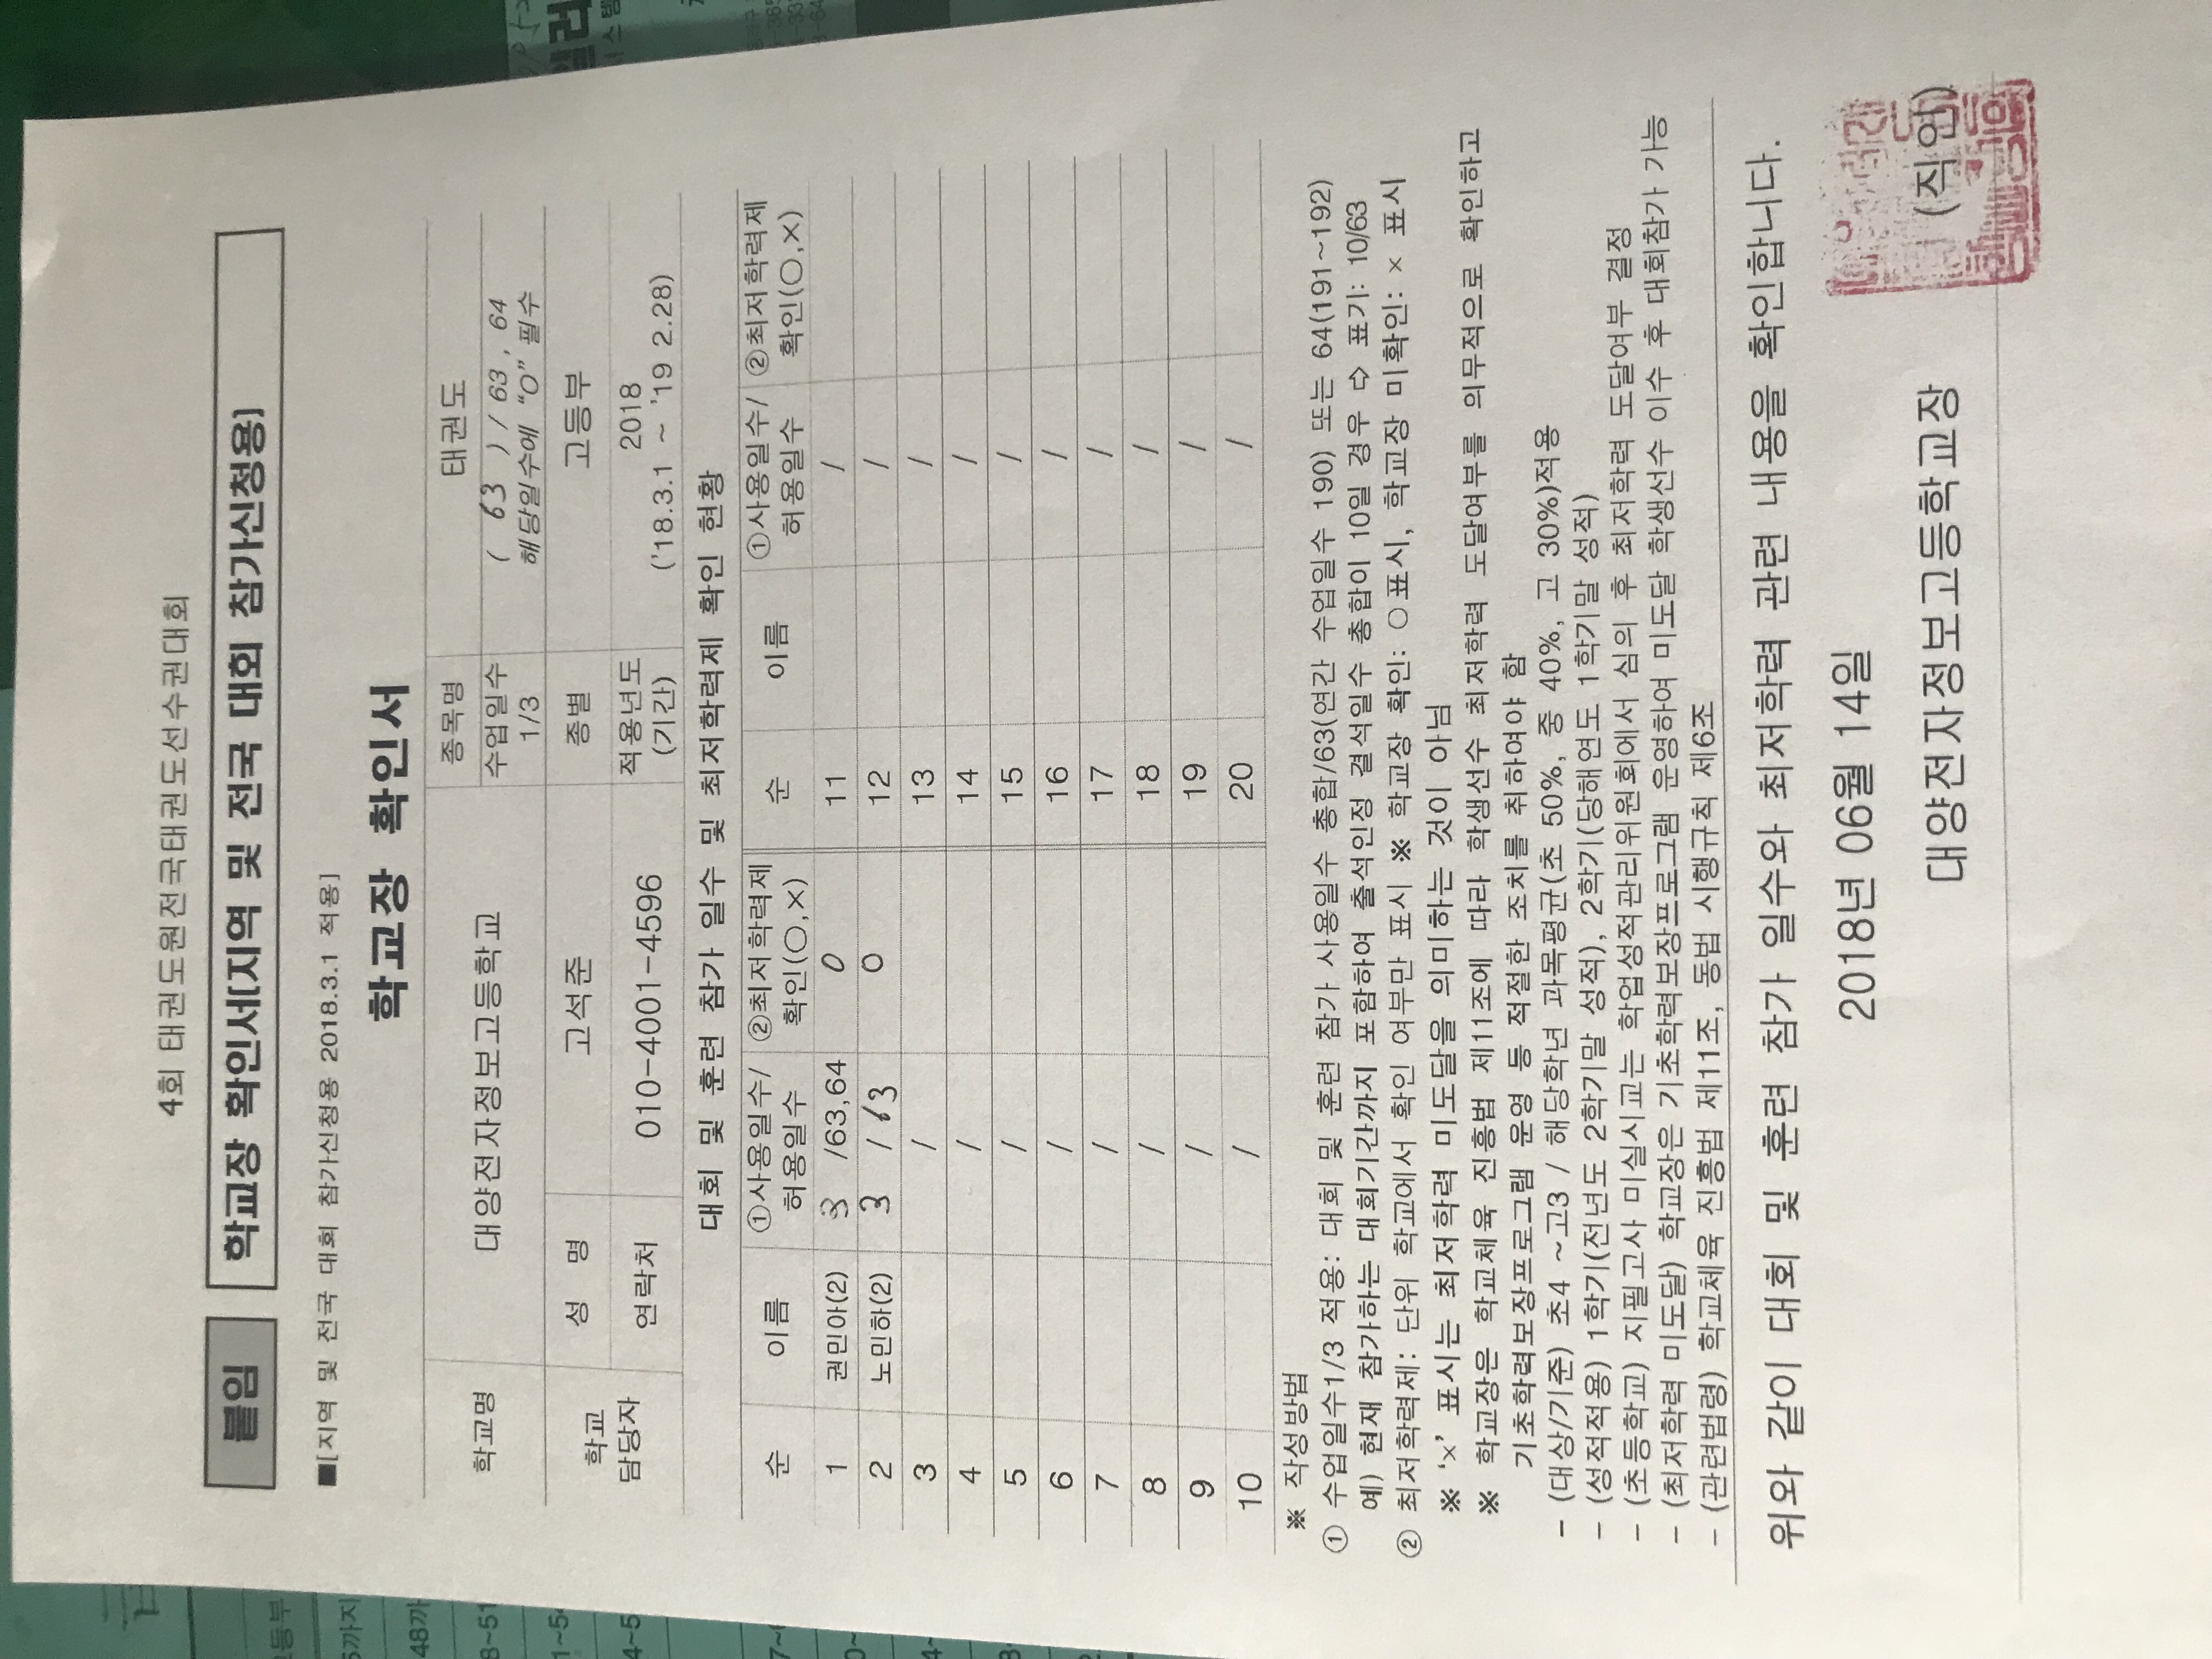 4회 태권도원전국태권도선수권대회
붙임 학교장 확인서[지역 및 전국 대회 참가신청용]
■[지역 및 전국 대회 참가신청용 2018.3.1 적용]
학교장 확인서
학교명 대양전자정보고등학교 종목명 태권도
수업일수 1/3 ( 63 ) / 63, 64
해당일수에 "O" 필수
학교 담당자 성 명 고석준 종별 고등부
연락처 010-4001-4596 적용년도 (기간) 2018
('18.3.1 ~ '19 2.28)
대회 및 훈련 참가 일수 및 최저학력제 확인 현황
순 이름 ①사용일수/허용일수 ②최저학력제 확인(○,×) 순 이름 ①사용일수/허용일수 ②최저학력제 확인(○,×)
1 권민아(2) 3 /63,64 0 11 /
2 노민하(2) 3 / 63 0 12 /
3 / 13 /
4 / 14 /
5 / 15 /
6 / 16 /
7 / 17 /
8 / 18 /
9 / 19 /
10 / 20 /
※ 작성방법
① 수업일수1/3 적용: 대회 및 훈련 참가 사용일수 총합/63(연간 수업일수 190) 또는 64(191~192)
예) 현재 참가하는 대회기간까지 포함하여 출석인정 결석일수 총합이 10일 경우 ⇨ 표기: 10/63
② 최저학력제: 단위 학교에서 확인 여부만 표시 ※ 학교장 확인: ○ 표시, 학교장 미확인: × 표시
※ '×' 표시는 최저학력 미도달을 의미하는 것이 아님
※ 학교장은 학교체육 진흥법 제11조에 따라 학생선수 최저학력 도달여부를 의무적으로 확인하고
기초학력보장프로그램 운영 등 적절한 조치를 취하여야 함
- (대상/기준) 초4 ~고3 / 해당학년 과목평균(초 50%, 중 40%, 고 30%)적용
- (성적적용) 1학기(전년도 2학기말 성적), 2학기(당해연도 1학기말 성적)
- (초등학교) 지필고사 미실시교는 학업성적관리위원회에서 심의 후 최저학력 도달여부 결정
- (최저학력 미도달) 학교장은 기초학력보장프로그램 운영하여 미도달 학생선수 이수 후 대회참가 가능
- (관련법령) 학교체육 진흥법 제11조, 동법 시행규칙 제6조
위와 같이 대회 및 훈련 참가 일수와 최저학력 관련 내용을 확인합니다.
2018년 06월 14일
대양전자정보고등학교장 (직인)